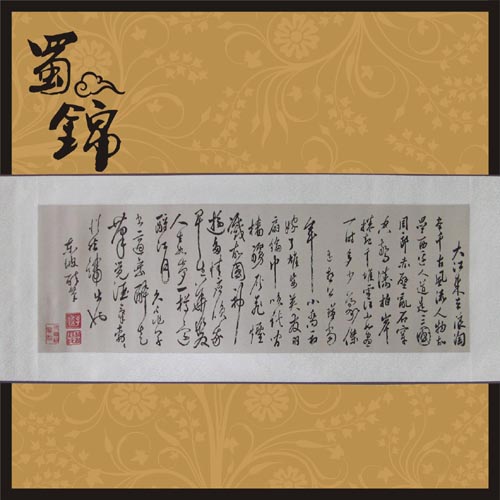 蜀錦
大江東去浪淘
盡千古風流人物故
壘西邊人道是三國
周郎赤壁亂石穿
空驚濤拍岸
捲起千堆雪江山如畫
一時多少豪傑
遙想公瑾當
年小喬初
嫁了雄姿英發羽
扇綸巾談笑間
檣艣飛灰煙
滅故國神
遊多情應笑我
早生華髮
人生如夢一樽還
酹江月 久不作草
書適乘醉走
筆覺酒氣勃勃
指端出也
東坡醉筆